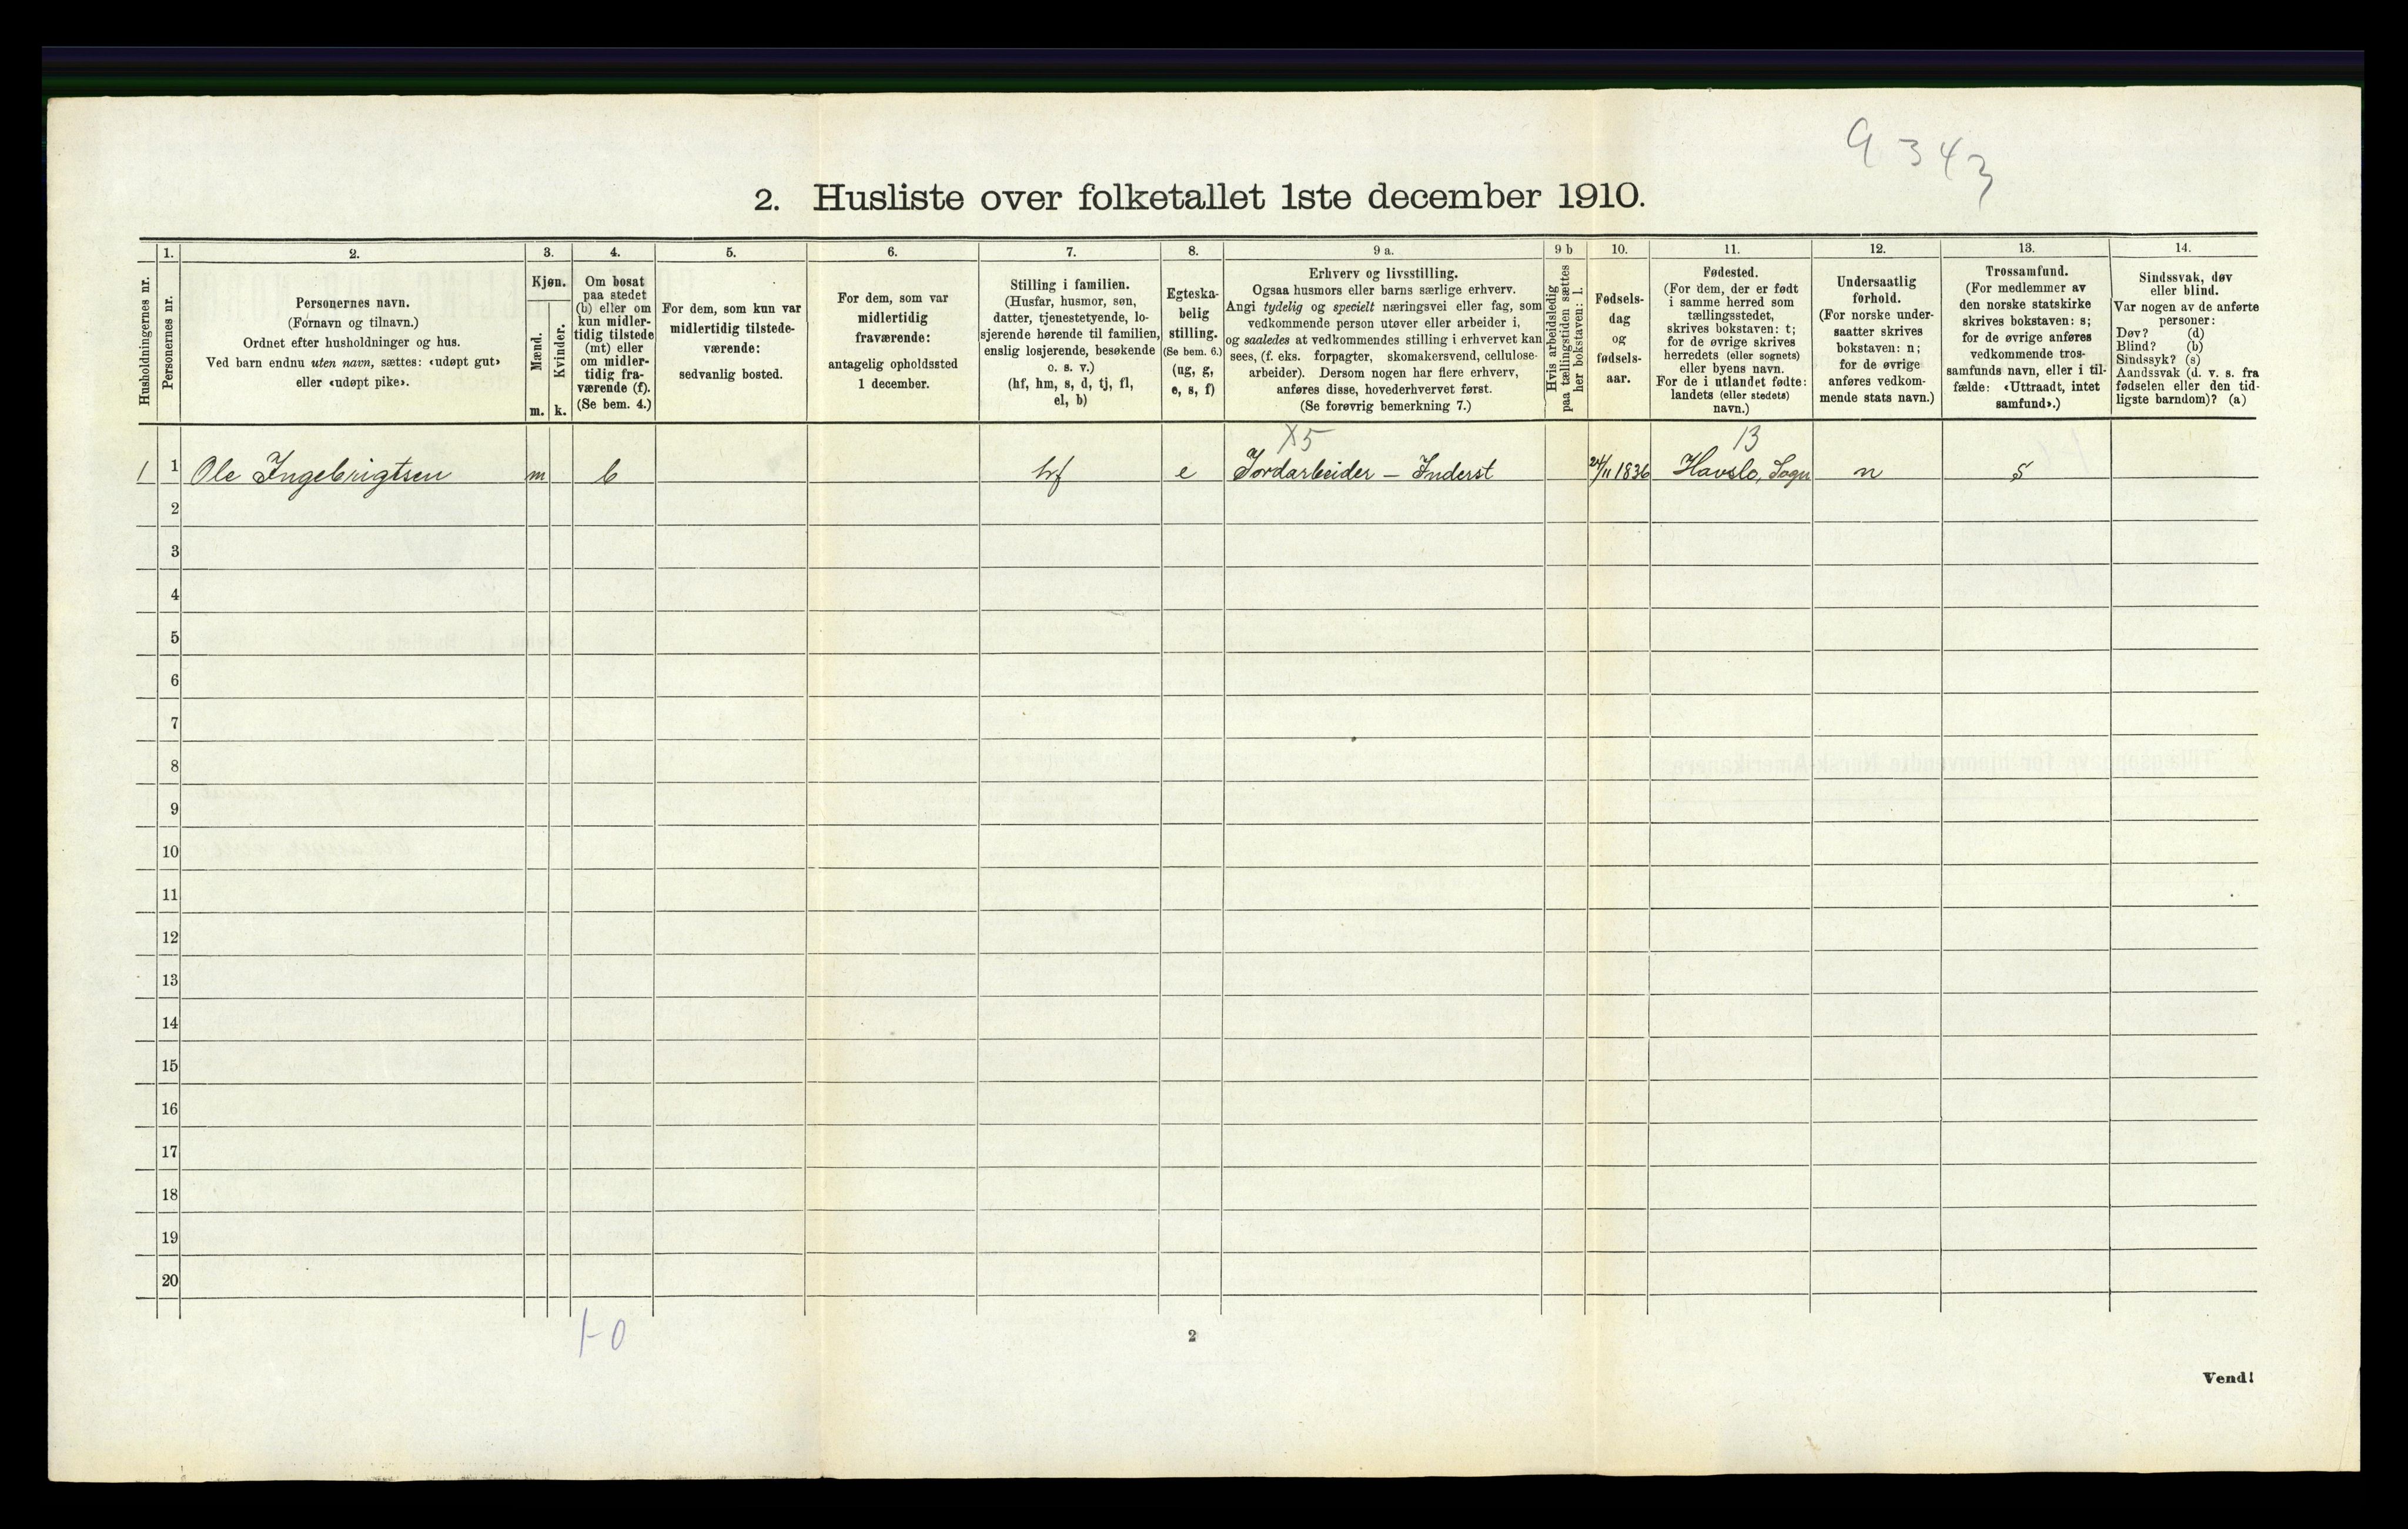 9343
2. Husliste over folketallet 1ste december 1910.
Husholdningernes nr.
1.
Personernes nr.
2.
Personernes navn.
(Fornavn og tilnavn.)
Ordnet efter husholdninger og hus.
Ved barn endnu uten navn, sættes: «udøpt gut»
eller «udøpt pike».
3.
Kjøn.
Mænd.
m.
Kvinder.
k.
4.
Om bosat
paa stedet
(b) eller om
kun midler-
tidig tilstede
(mt) eller
om midler-
tidig fra-
værende (f).
(Se bem. 4.)
5.
For dem, som kun var
midlertidig tilstede-
værende:
sedvanlig bosted.
6.
For dem, som var
midlertidig
fraværende:
antagelig opholdssted
1 december.
7.
Stilling i familien.
(Husfar, husmor, søn,
datter, tjenestetyende, lo-
sjerende hørende til familien,
enslig losjerende, besøkende
o. s. v.)
(hf, hm, s, d, tj, fl,
el, b)
8.
Egteska-
belig
stilling.
(Se bem. 6.)
(ug, g,
e, s, f)
9 a.
Erhverv og livsstilling.
Ogsaa husmors eller barns særlige erhverv.
Angi tydelig og specielt næringsvei eller fag, som
vedkommende person utøver eller arbeider i,
og saaledes at vedkommendes stilling i erhvervet kan
sees, (f. eks. forpagter, skomakersvend, cellulose-
arbeider). Dersom nogen har flere erhverv,
anføres disse, hovederhvervet først.
(Se forøvrig bemerkning 7.)
9 b
Hvis arbeidsledig
paa tællingstiden sættes
her bokstaven: l.
10.
Fødsels-
dag
og
fødsels-
aar.
11.
Fødested.
(For dem, der er født
i samme herred som
tællingsstedet,
skrives bokstaven: t;
for de øvrige skrives
herredets (eller sognets)
eller byens navn.
For de i utlandet fødte:
landets (eller stedets)
navn.)
12.
Undersaatlig
forhold.
(For norske under-
saatter skrives
bokstaven: n;
for de øvrige
anføres vedkom-
mende stats navn.)
13.
Trossamfund.
(For medlemmer av
den norske statskirke
skrives bokstaven: s;
for de øvrige anføres
vedkommende tros-
samfunds navn, eller i til-
fælde: «Uttraadt, intet
samfund».)
14.
Sindssvak, døv
eller blind.
Var nogen av de anførte
personer:
Døv? (d)
Blind? (b)
Sindssyk? (s)
Aandssvak (d. v. s. fra
fødselen eller den tid-
ligste barndom)? (a)
X5 13
1 1 Ole Ingebrigtsen m b hf e Jordarbeider – Inderst 24/11 1836 Havslo, Sogn n s
2
3
4
5
6
7
8
9
10
11
12
13
14
15
16
17
18
19
20
1-0
2
Vend!